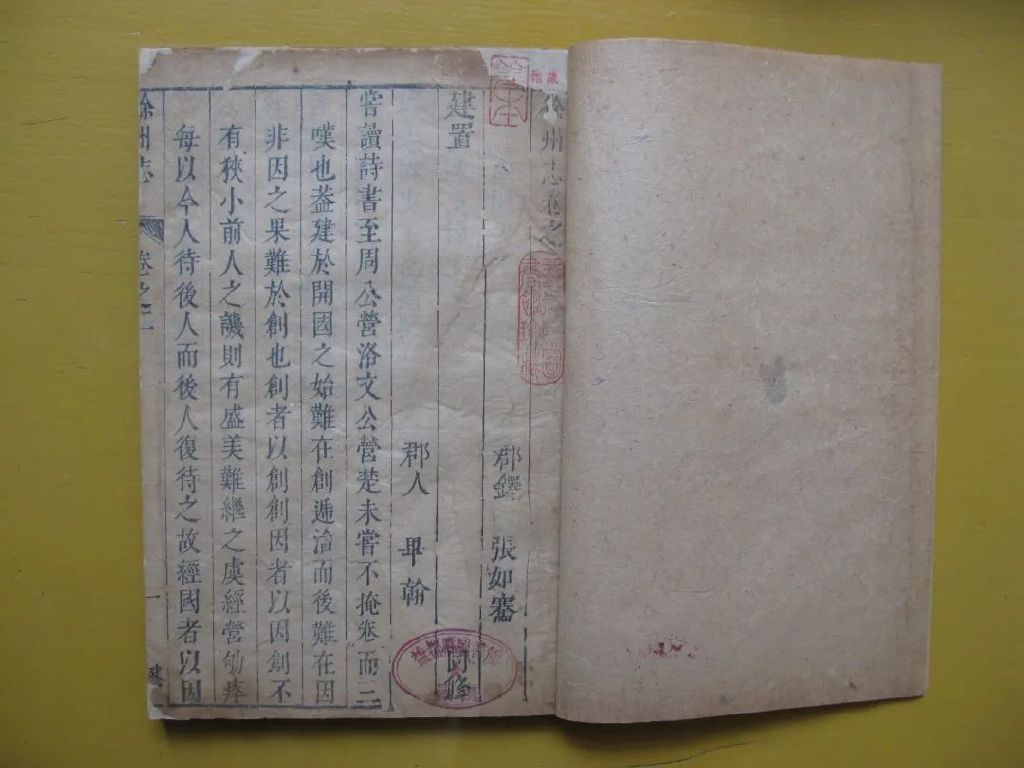 徐州志卷之
郡鐸 張如騫
建置
郡人 畢翰
嘗讀詩書至周公營洛文公營楚未嘗不掩卷而三
嘆也葢建於開國之始難在創遞淪而後難在因
非因之果難於創也創者以創創因者以因創不
有狹小前人之譏則有盛美難繼之虞經營劬瘁
每以今人待後人而後人復待之故經國者以因
徐州志 卷之二 一